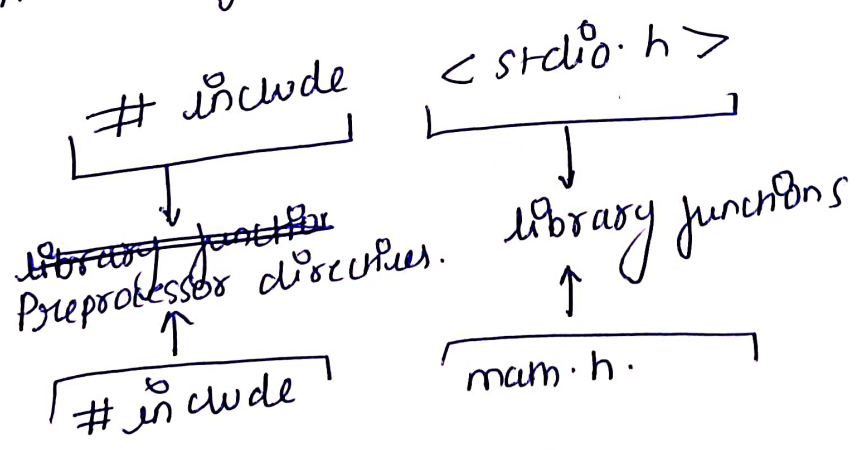 # include < stdio.h >
library function
Preprocessor directives.
library functions
# include
math.h.